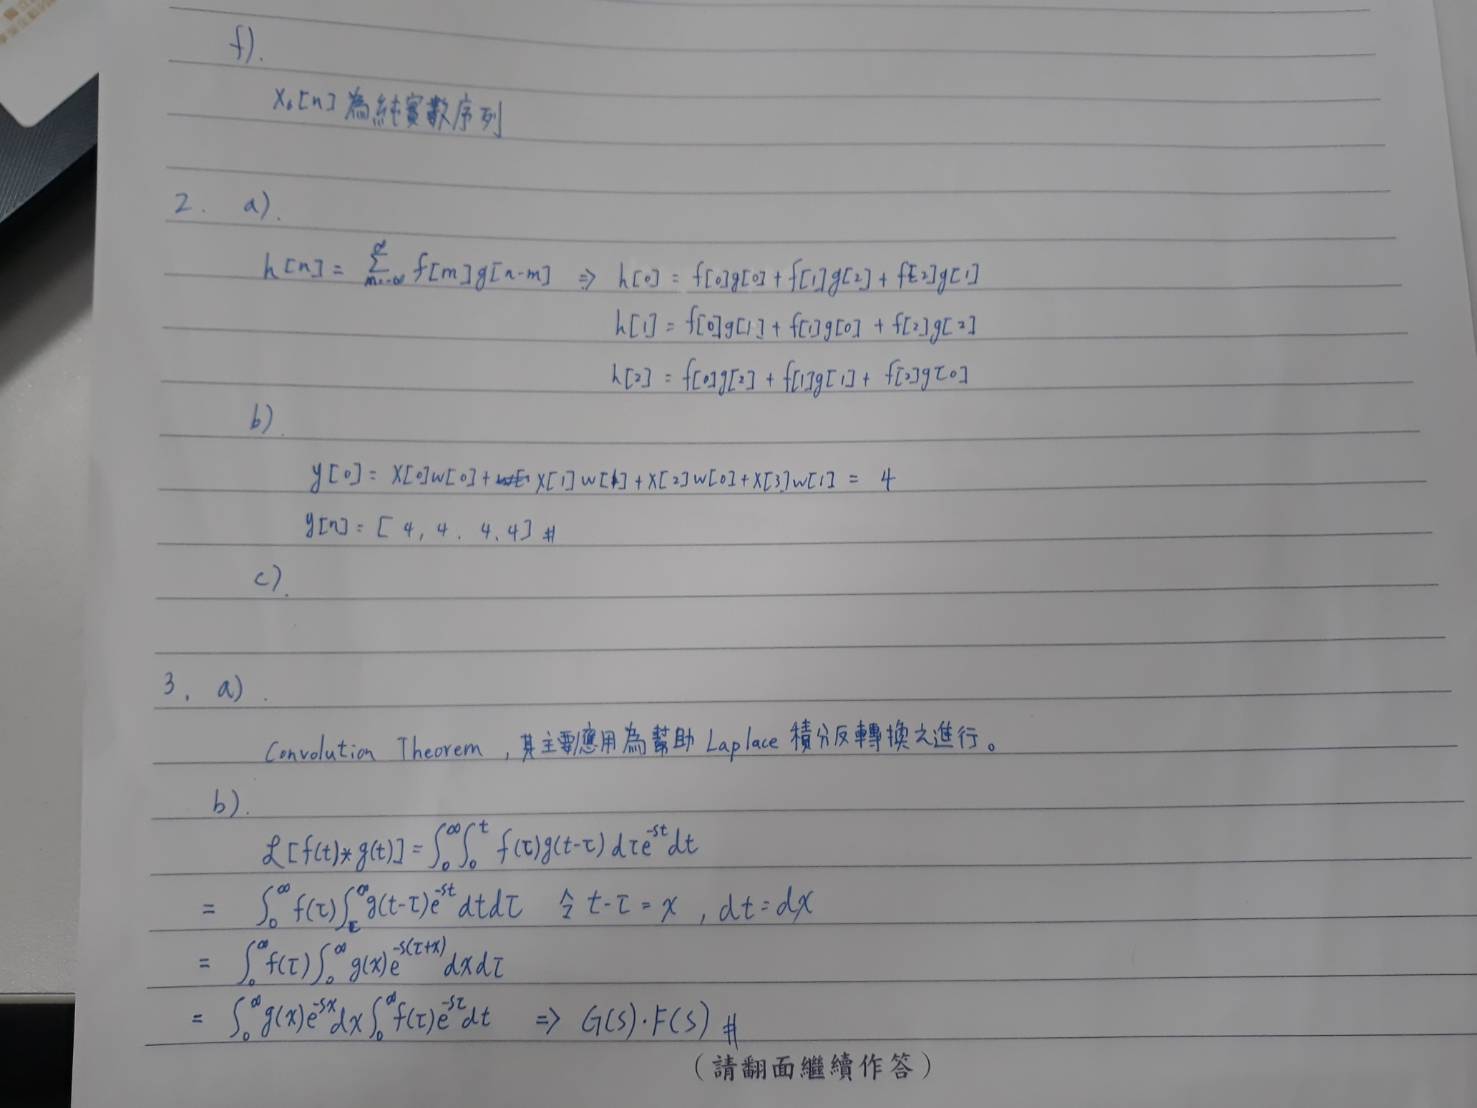 f).
X₆[n] 為純實數序列
2. a).
h[n] = ∑_{m=-∞}^{∞} f[m]g[n-m] ⇒ h[0] = f[0]g[0] + f[1]g[2] + f[2]g[1]
h[1] = f[0]g[1] + f[1]g[0] + f[2]g[2]
h[2] = f[0]g[2] + f[1]g[1] + f[2]g[0]
b).
y[0] = X[0]w[0] + X[1]w[1] + X[2]w[0] + X[3]w[1] = 4
y[n] = [4, 4, 4, 4] #
c).
3. a).
Convolution Theorem, 其主要應用為幫助 Laplace 積分反轉換之進行。
b).
ℒ[f(t)*g(t)] = ∫₀^∞ ∫₀^t f(τ)g(t-τ) dτ e^{-st} dt
= ∫₀^∞ f(τ) ∫_τ^∞ g(t-τ) e^{-st} dt dτ 令 t-τ = x , dt = dx
= ∫₀^∞ f(τ) ∫₀^∞ g(x) e^{-s(τ+x)} dx dτ
= ∫₀^∞ g(x) e^{-sx} dx ∫₀^∞ f(τ) e^{-sτ} dt ⇒ G(s)·F(s) #
(請翻面繼續作答)